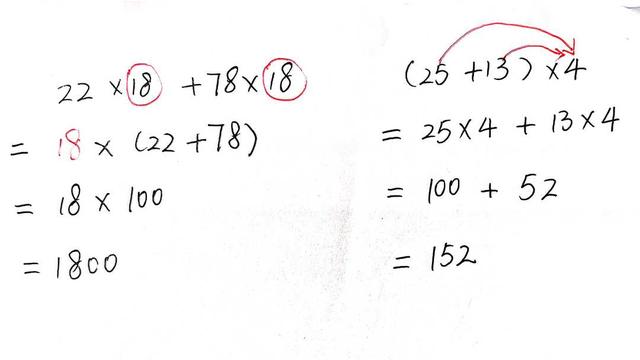 22 × 18 + 78 × 18
= 18 × (22 + 78)
= 18 × 100
= 1800
(25 + 13) × 4
= 25 × 4 + 13 × 4
= 100 + 52
= 152